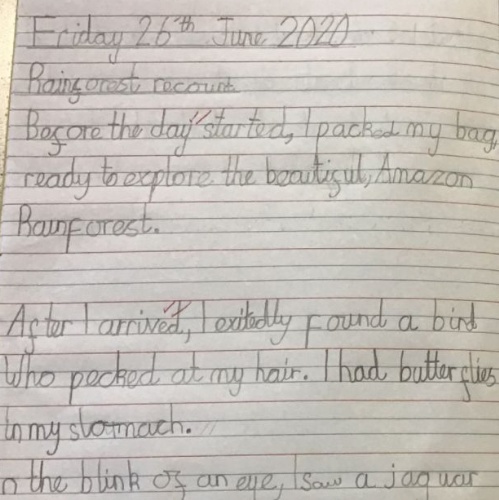 Friday 26th June 2020
Rainforest recount
Before the day started, I packed my bag,
ready to explore the beautiful, Amazon
Rainforest.
After I arrived, I exitedly found a bird
Who pecked at my hair. I had butterflies
in my stomach.
n the blink of an eye, I saw a jaguar